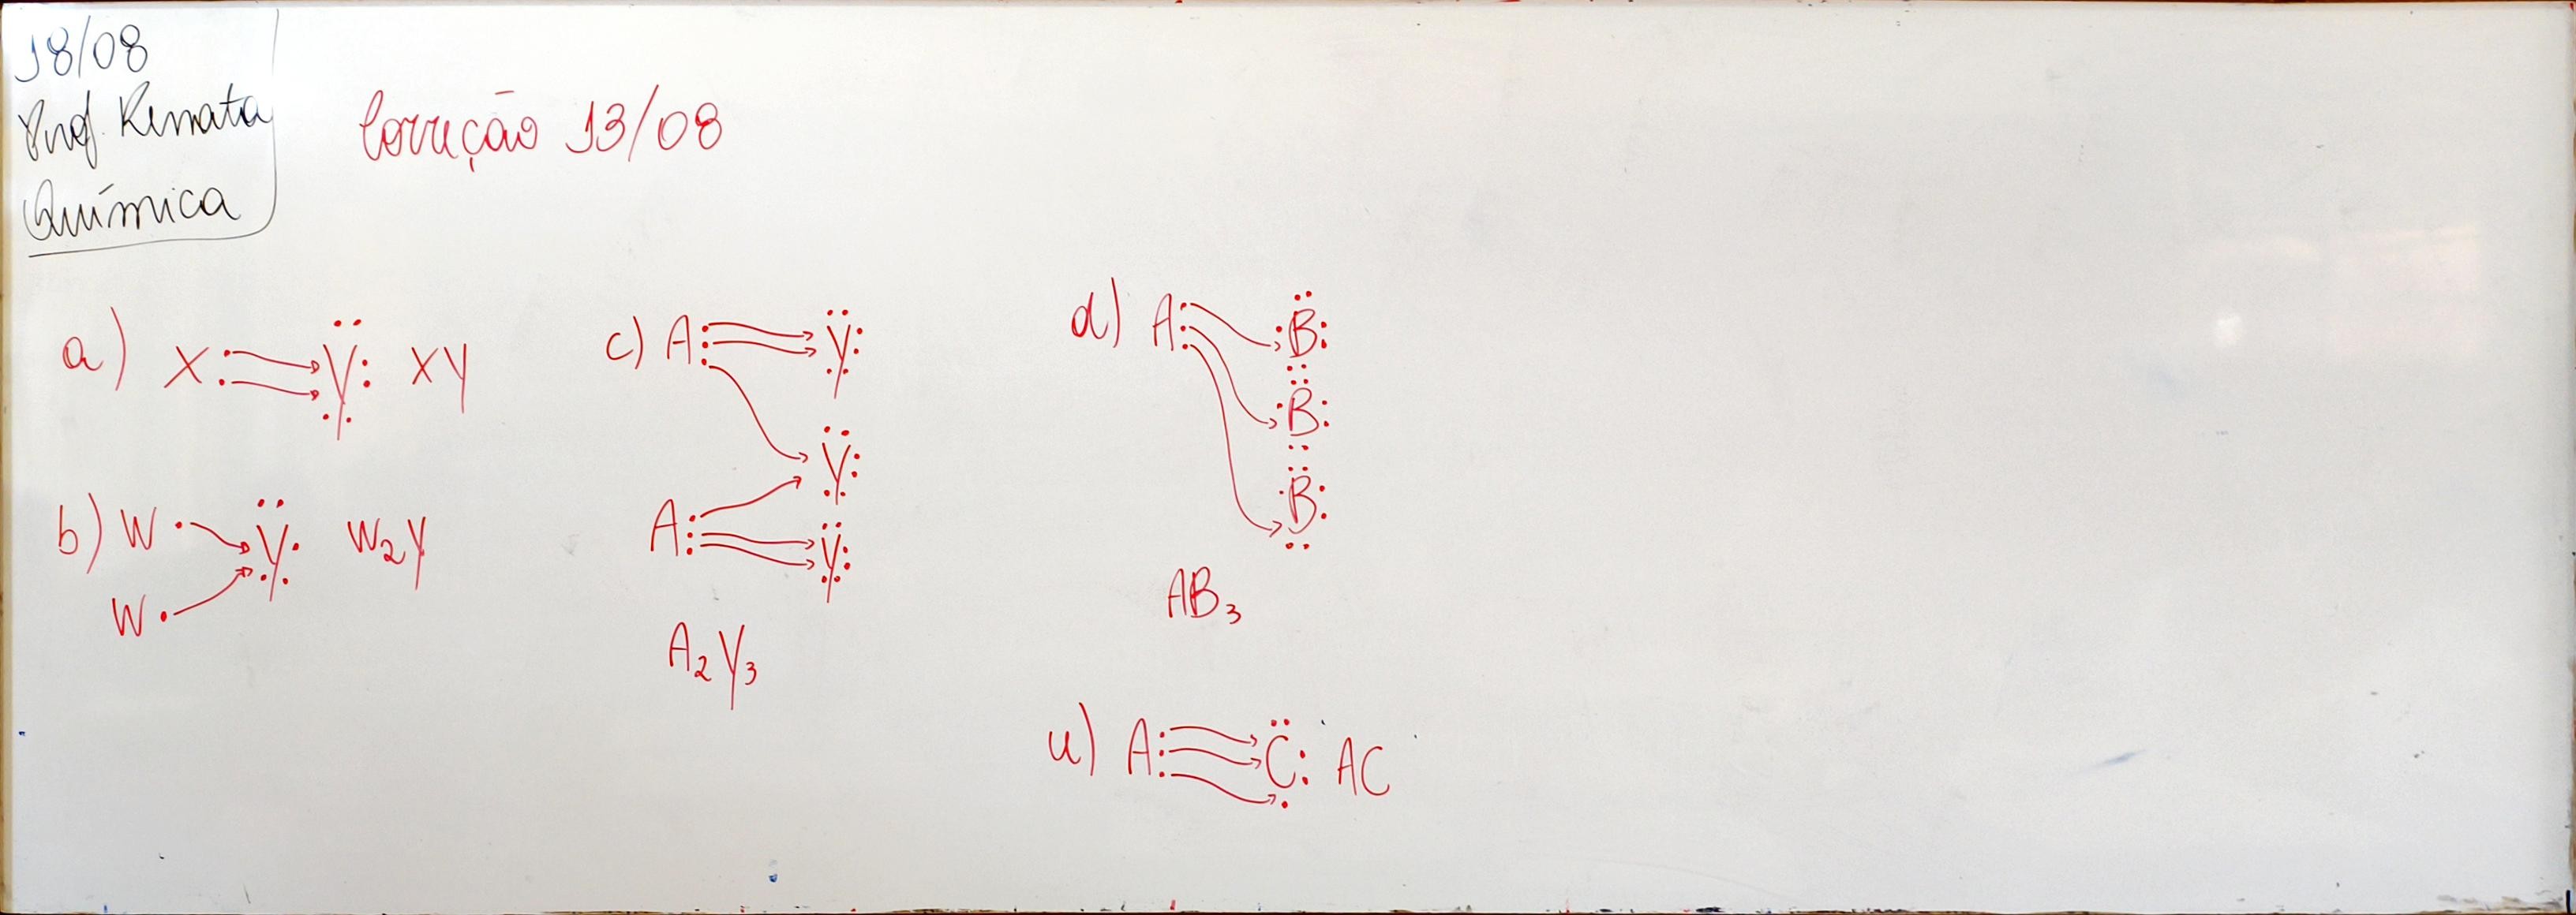 18/08
Prof. Renata
Química
Correção 13/08
a) X: Y: XY
b) W· Y· W₂Y
W·
c) A: Y:
Y:
A: Y:
A₂Y₃
d) A: B:
B:
B:
AB₃
e) A: C: AC